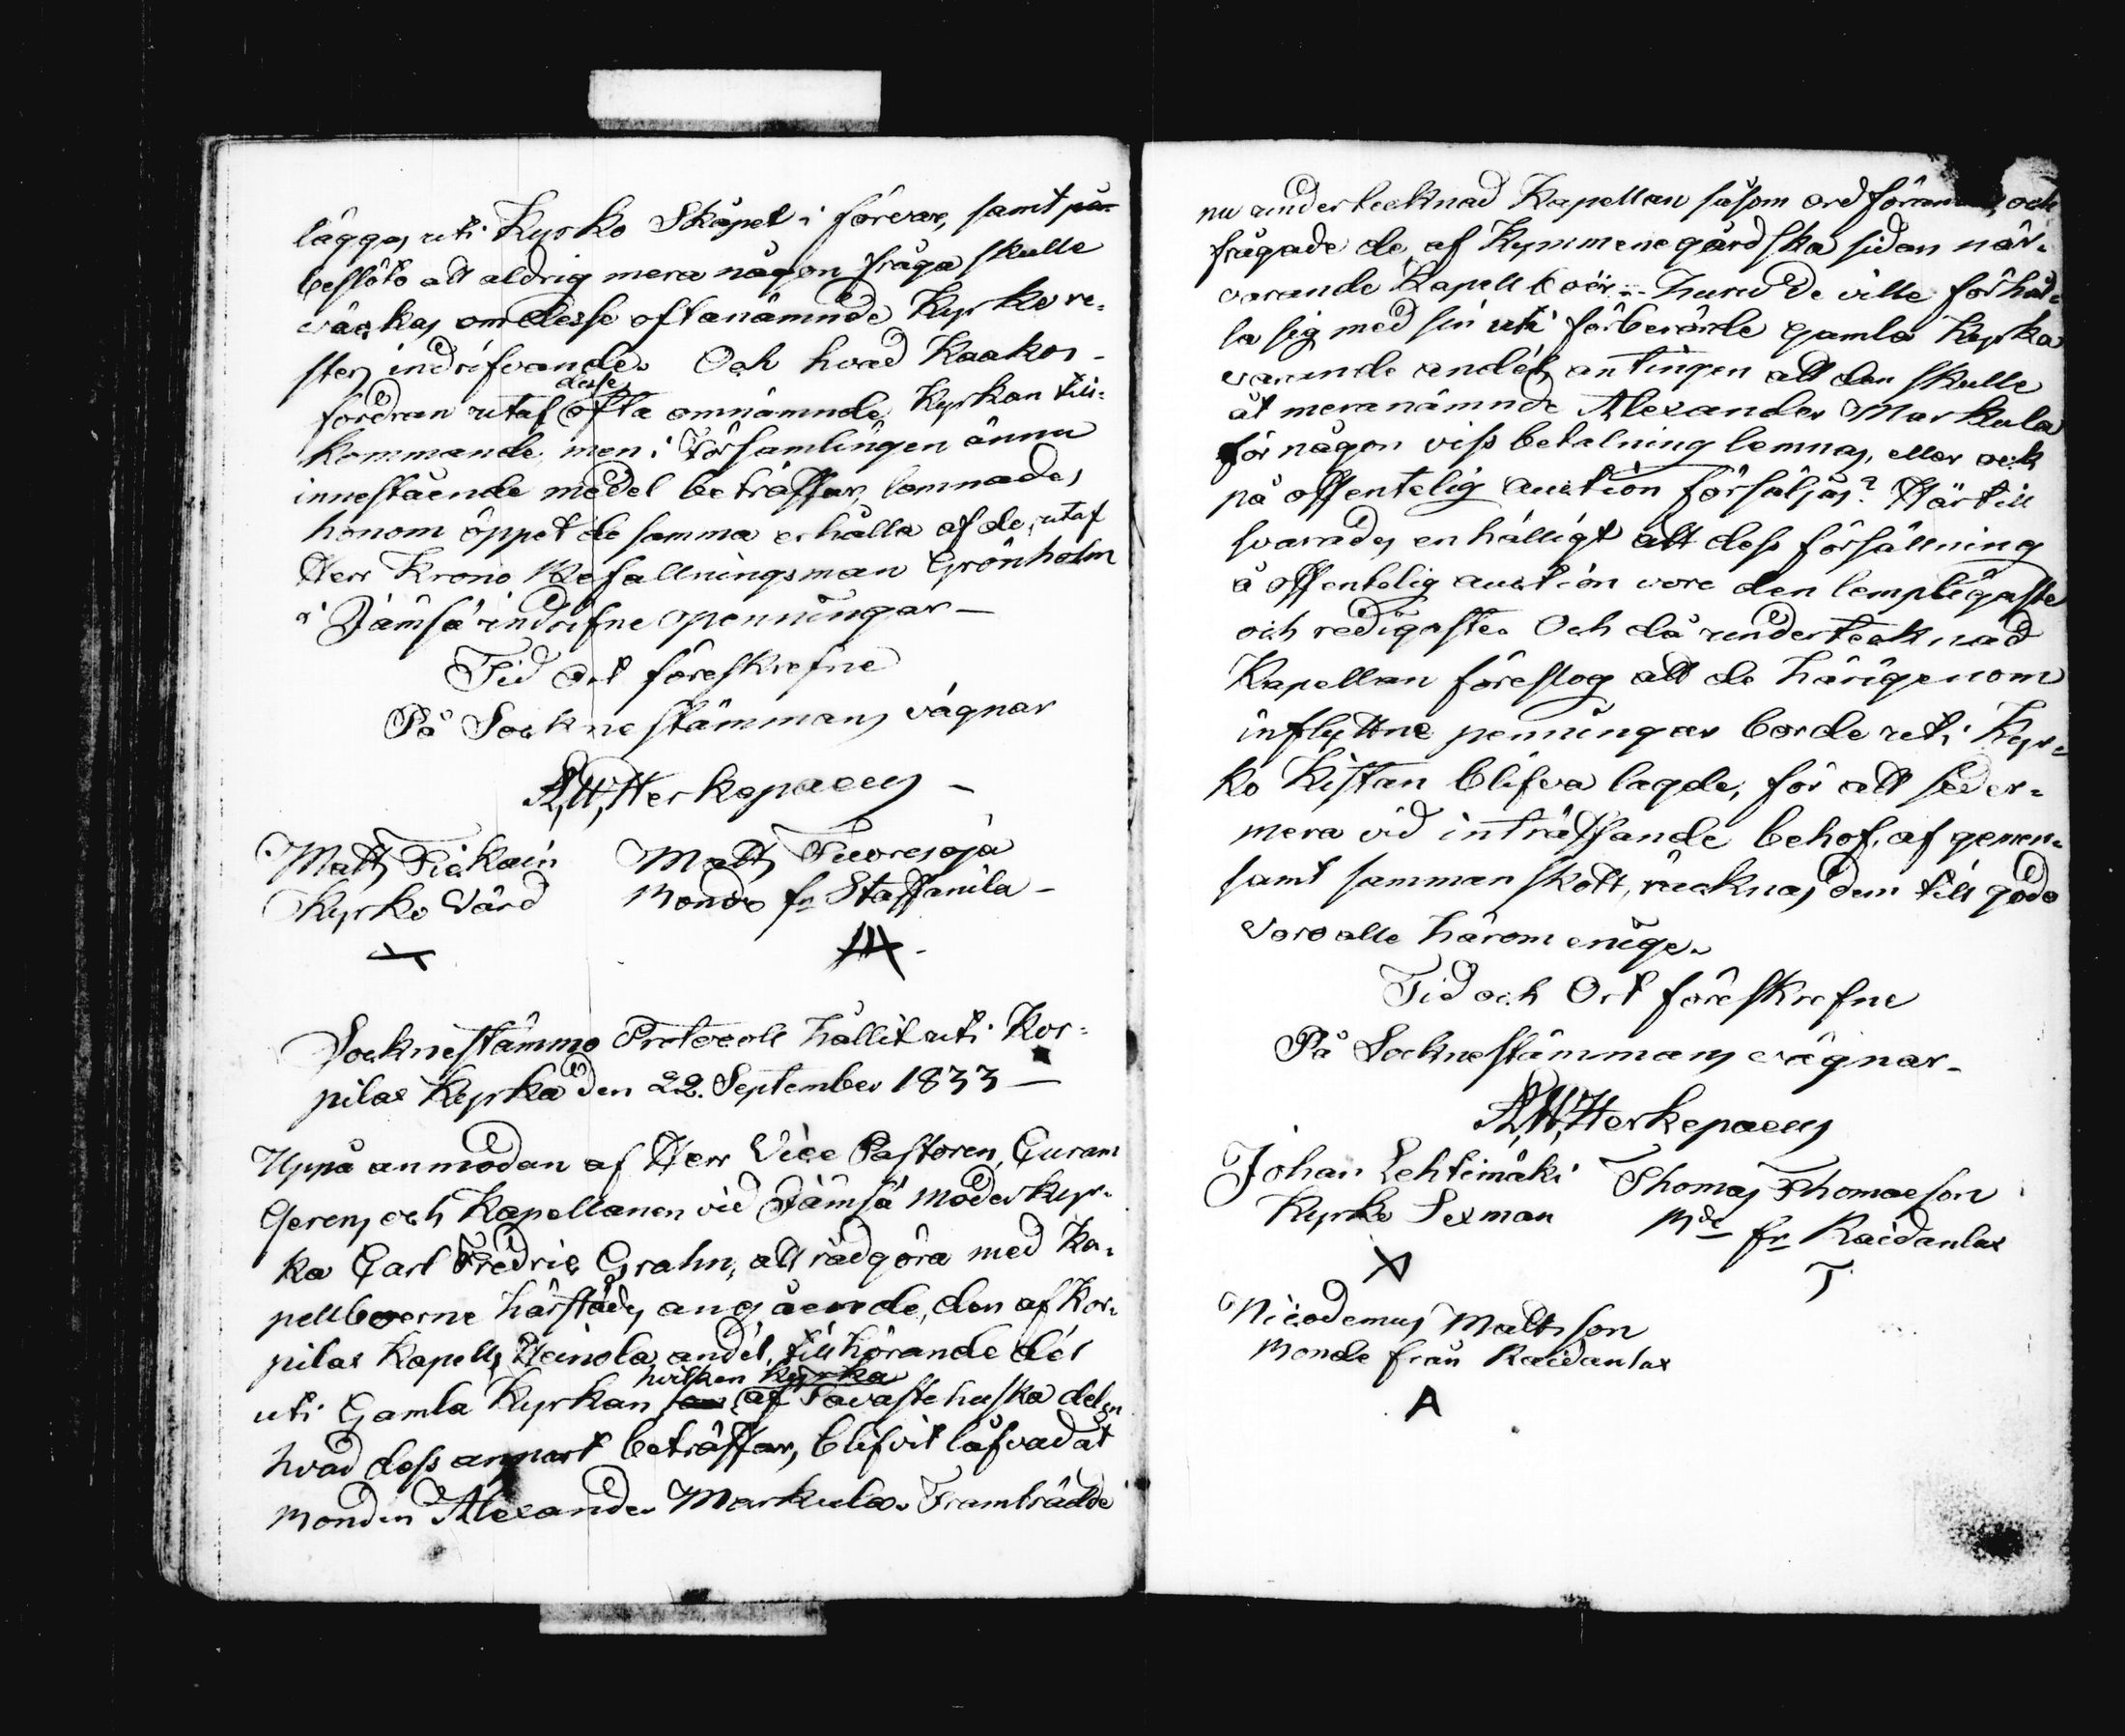 läggas uti Kyrko Skåpet i förvar, samt på-
beslöto att aldrig mera någon fråga skulle
väckas om desse oftanämnde Kyrko re-
sters indrifvande. Och hvad Kaakos
fordran utaf desse ofta omnämnde, Kyrkan till-
kommande, men i Församlingen ännu
innestående medel beträffar, lemnades
honom öppet de samma erhålla af de, utaf
Herr Krono Befallningsman Grönholm
i Jämsä indrifne penningar —
Tid ort föreskrefne
På Sockne stämmans vägnar
Herkepaeus —
Matts Tickain Matts Tuoresoja
Kyrko Värd Bonde fr Staffanila —
Socknestämmo Protocoll hållit uti Kor-
pilax Kyrka den 22. September 1833 —
Uppå anmodan af Herr Vice Pastoren, Curam
Gerens och Kapellanen vid Jämsä Moderkyr-
ka Carl Fredric Grahn, att rådgöra med Ka-
pellboerne härstädes angående, den af Kor-
pilax Kapells Heinola andel, tillhörande del
uti Gamla Kyrkan, som hvilken Kyrka af Tavastehuska delen
hvad dess annart beträffar, blifvit låfvad åt
Bonden Alexander Markula. Framträdde
nu undertecknad Kapellan såsom ordförande, och
frågade de af Kymmenegårdska sidan när-
varande Kapellboer: huru de ville förhål-
la sig med sin uti förberörde gamla Kyrka
varande andel, antingen att den skulle
åt meranämnde Alexander Markula
för någon viss betalning lemnas, eller ock
på offentelig auction försäljas? Härtill
svarades enhälligt att dess försällning
å offentelig auction vore den lempligaste
och redigaste. Och då undertecknad
Kapellan föreslog att de härigenom
influttne penningar borde uti Kyr-
ko Kistan blifva lagde, för att seder-
mera vid inträffande behof, af gemen-
samt sammanskott, räcknas dem till godo
voro alle härom enige.
Tid och Ort föreskrefne
På Socknestämmans vägnar —
Herkepaeus
Johan Lehtimäki Thomas Thomaeson
Kyrko Sexman Bde fr Raidanlax
T
Nicodemus Mattsson
Bonde från Raidanlax
A